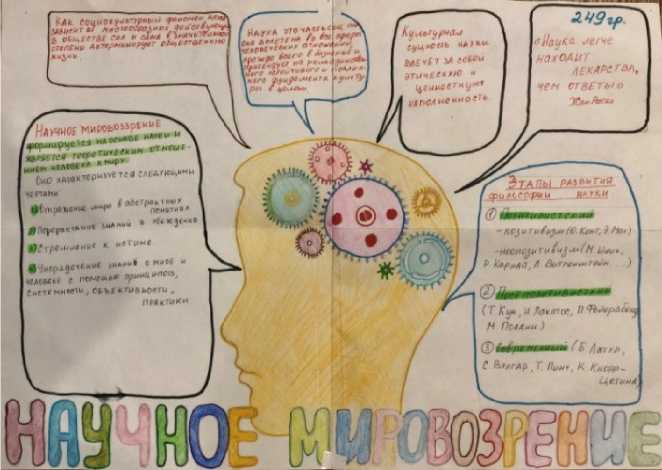 Как социокультурный феномен наука
зависит от многообразных действующих
в обществе сил и сама в значительной
степени детерминирует общественную
жизнь.
Наука это часть
она вплетена во все сферы
человеческих отношений,
прежде всего в
культу-
ры в целом.
Культурная
сущность науки
влечёт за собой
этическую и
ценностную
наполненность.
249гр.
«Наука легче
находит
лекарства,
чем ответы»
Жан Ростан
Научное мировоззрение
формируется на основе науки и
является теоретическим отноше-
нием человека к миру.
Оно характеризуется следующими
чертами:
Отражение мира в абстрактных
понятиях
Перерастание знаний в убеждения
Стремление к истине
Упорядочение знаний о мире и
человеке с помощью принципов,
системности, объективности,
практики
Этапы развития
философии науки
① Позитивистский
-позитивизм (О. Конт, Э. Мах)
-неопозитивизм (М. Шлик,
Р. Карнап, Л. Витгенштейн...)
② Постпозитивистский
(Т. Кун, И. Лакатос, П. Фейерабенд,
М. Полани)
③ Современный (Б. Латур,
С. Вулгар, Т. Пинч, К. Кнорр-
Цетина)
НАУЧНОЕ МИРОВОЗРЕНИЕ